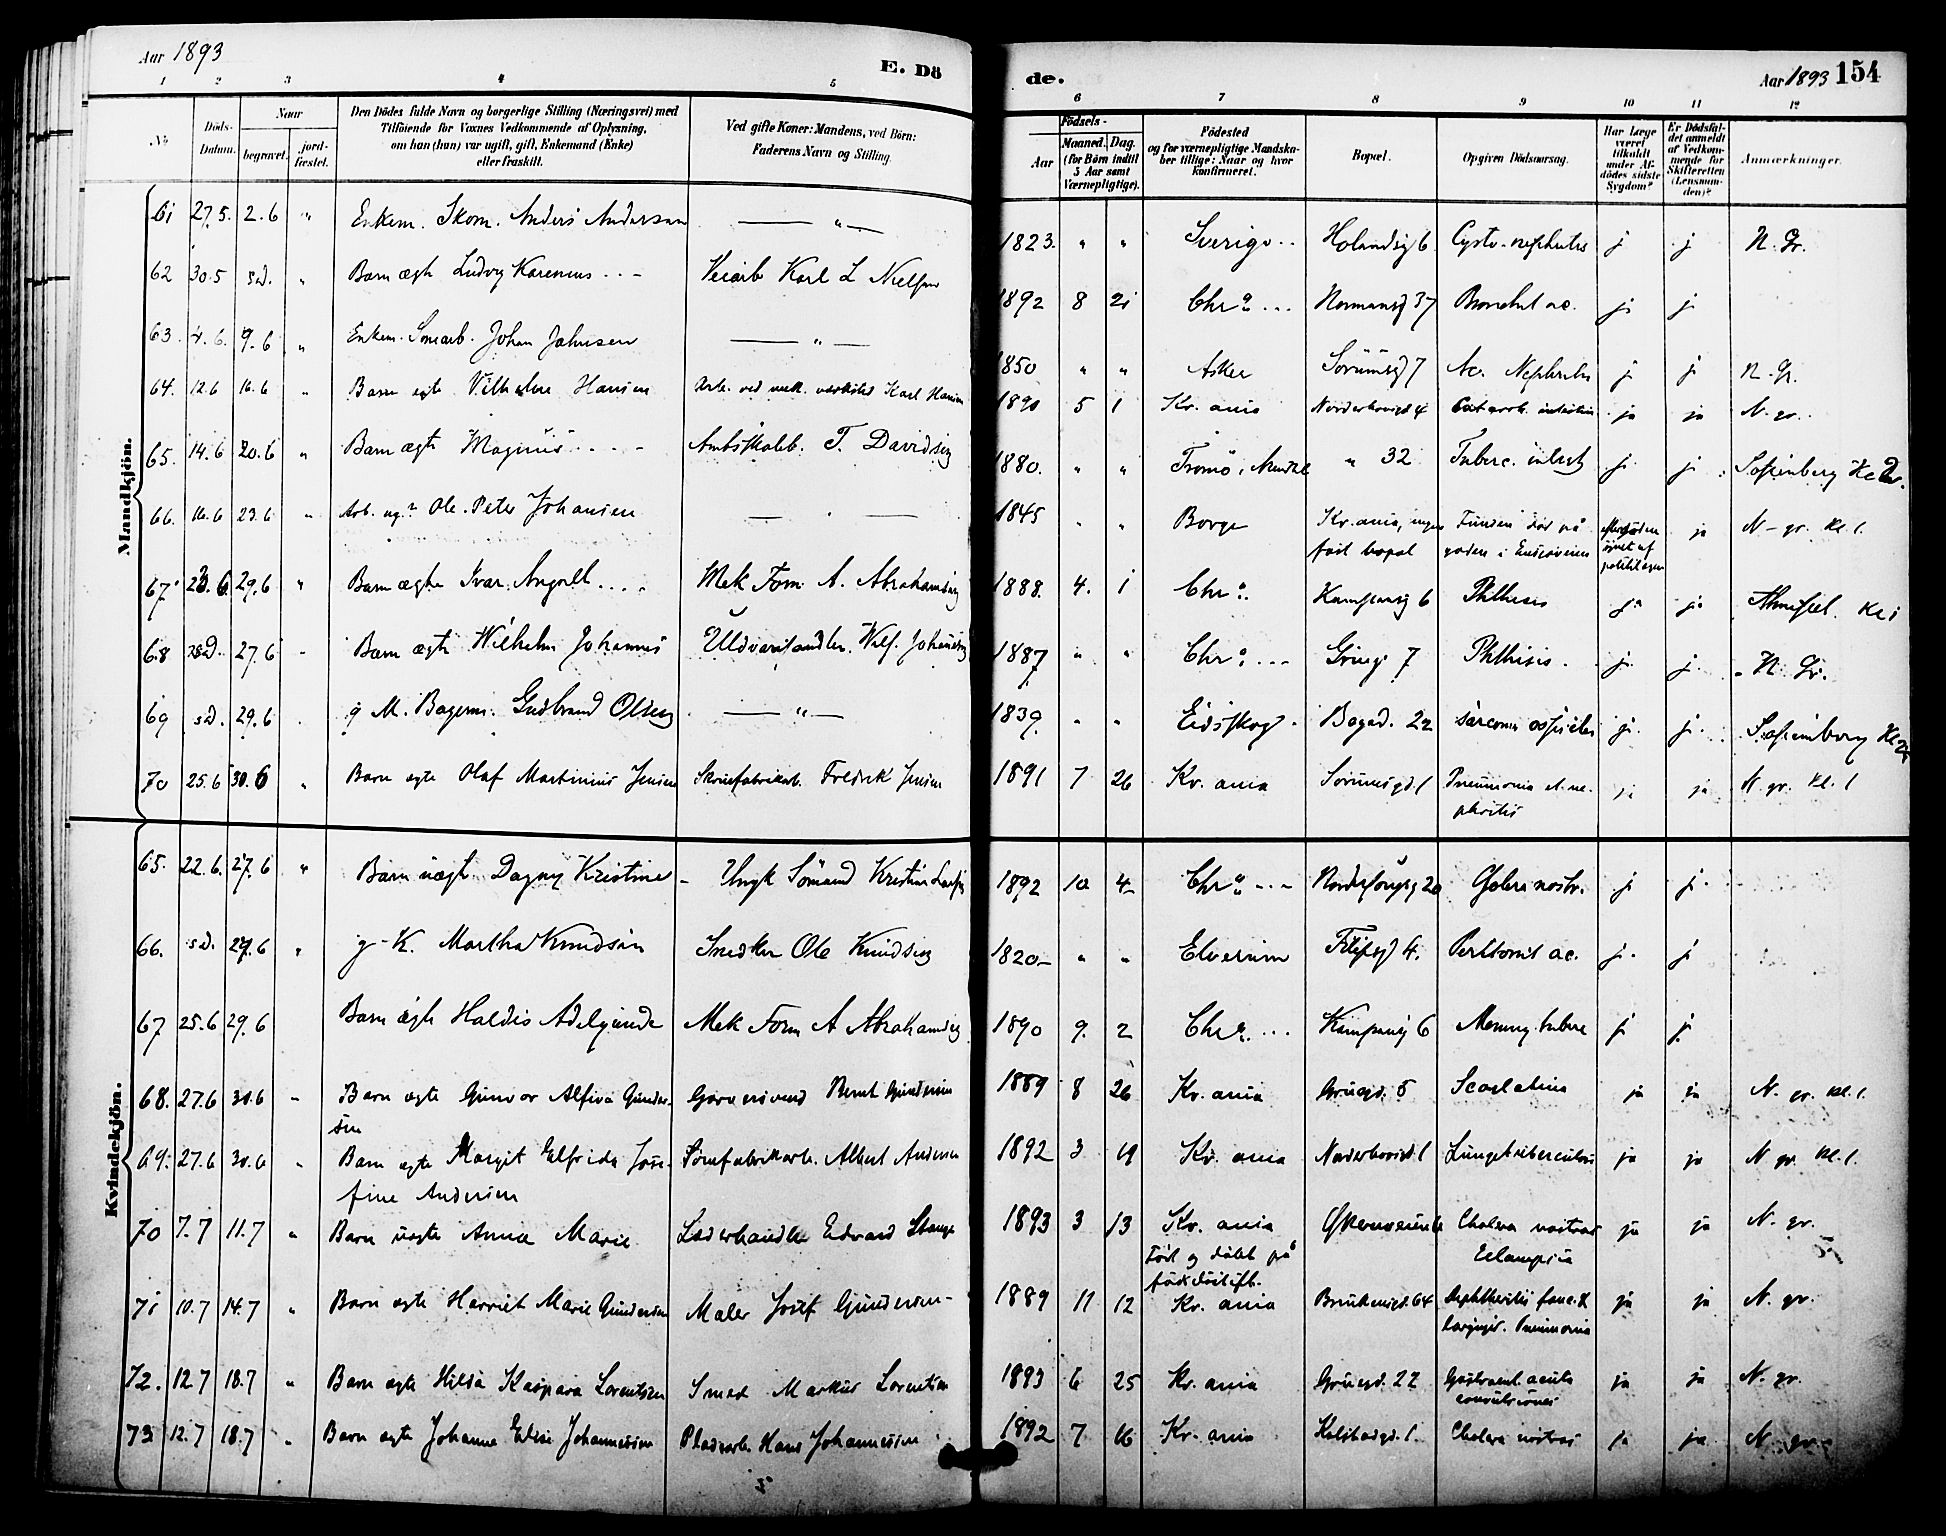 Aar 1893
E. Dö
de.
Aar 1893 154
1 2 3 4 5 6 7 8 9 10 11 12
No
Döds-Datum.
Naar
begravet.
jord-fæstet.
Den Dödes fulde Navn og borgerlige Stilling (Næringsvei) med
Tilföiende for Voxnes Vedkommende af Oplysning,
om han (hun) var ugift, gift, Enkemand (Enke)
eller fraskilt.
Ved gifte Koner: Mandens, ved Börn:
Faderens Navn og Stilling.
Födsels-
Aar
Maaned. Dag.
(for Börn indtil
5 Aar samt
Værnepligtige).
Födested
og for værnepligtige Mandska-
ber tillige: Naar og hvor
konfirmeret.
Bopæl.
Opgiven Dödsaarsag.
Har Læge
været
tilkaldt
under Af-
dödes sidste
Sygdom?
Er Dödsfal-
det anmeldt
af Vedkom-
mende for
Skifteretten
(Lensman-
den)?
Anmærkninger.
Mandkjön.
61 27.5. 2.6 " Enkem. Skom. Anders Andersen — " — 1823. " " Sverige Cysto-nephritis j j N. Gr.
62 30.5 s.d. " Barn ægte Ludvig Karenius Veiarb Karl L Nielsen 1892 8 21 Chr.a Normansg 37 Bronchit ac. j j
63. 4.6. 9.6 " Enkem. Johan Johnsen — " — 1850 " " Asker Sörumsg 7 Ac. Nephritis j j N. Gr.
64. 12.6 16.6 " Barn egte Vilhelm Hansen Arb. ved mek. værksted Karl Hansen 1890 5 1 Kr.ania Norderhovsgd 4 ja ja N. gr.
65. 14.6 20.6 " Barn ægte Magnus T. Davidsen 1880. " " Tromö, Arendal " 32 Tuberc. j j Sofienberg
66. 16.6 23.6 " Arb. ug. Ole Peter Johansen — " — 1845 " " Borge Kr.ania, ingen
fast bopæl Funden död på
gaden i ja N-gr. Kl. 1.
67. 23.6 29.6 " Barn ægte Ivar Mek Form. A. Abrahamsen 1888. 4. 1 Chr.a Kampensg 6 Phthisis ja ja
68 s.d. 27.6 " Barn ægte Wilhelm Johannes 1887 " " Chr.a 7 Phthisis. j. j. N. Gr.
69 s.d. 29.6 g M. Gudbrand Olsen — " — 1839. " " Eidsskog Sarcoma j. j. Sofienberg
70 25.6 30.6 " Barn egte Olaf Martinius Jensen Fredrik Jensen 1891 7 26 Kr.ania Sorumsgd. 1 Pneumonia et ne-
phritis ja ja N. gr. Kl. 1
Kvindekjön.
65. 22.6. 27.6 " Barn uægt. Dagny Kristine – Ungk Sömand 1892 10 4 Chr.a 20 j j
66. s.d. 27.6 " g. K. Martha Knudsen Snedker Ole Knudsen 1820 " " Elverum Filipsgd 4. Peritonit ac. j. j
67 25.6 29.6 Barn ægte Haldis Adelgunde Mek Form A Abrahamsen 1890 9. 2 Chr.a Kampensg 6 Mening. tuberc j j.
68. 27.6 30.6 " Barn egte Gunvor Alfiva Gunder-
sen Garversvend Bernt Gundersen 1889 8 26 Kr.ania Grüegd. 5 Scarlatina ja ja N. gr. Kl. 1.
69. 27.6 30.6 " Barn egte Margit Elfrida Jose-
fine Andersen Albert Andersen 1892 3 19 Kr.ania Norderhovsgd. 1 Lungetuberculose ja ja N gr Kl. 1.
70 7.7 11.7 " Barn uegte Anna Marie Læderhandler Edvard Stange 1893 3 13 Kr.ania
Född og döbt på
födselsstift. Cholera nostras
Eclampsia ja ja N. gr.
71 10.7 14.7 " Barn egte Harriet Marie Gundersen Maler Josef Gundersen 1889 11 12 Kr.ania 64 Diphtheritis fauc. &
laryngis. Pneumonia ja ja N. gr.
72. 12.7 18.7 " Barn egte Hilda Kaspara Lorentzen Smed Markus Lorentzen 1893 6 25 Kr.ania Grüegd. 22 Gastroent. acuta
convulsiones ja ja N. gr.
73 12.7 18.7 " Barn egte Johanne Elise Johannessen Pladsarb. Hans Johannessen 1892 7 16 Kr.ania 1. Cholera nostras ja ja N. gr.